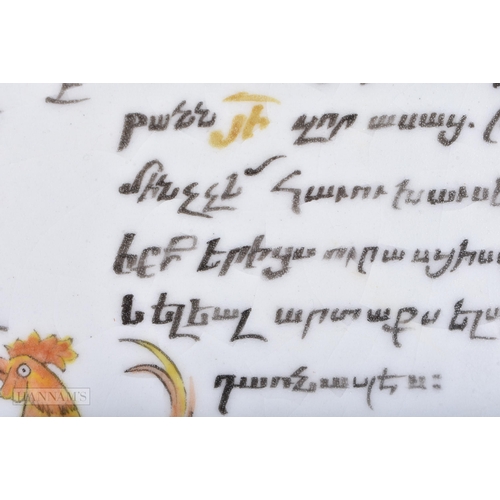 բանն յի զոր ասաց.
մինչչև հաւու խաւսե
երիցս ուրասցիս
և ելեալ արտաքս ելա
դառնապէս։
HANNAM'S